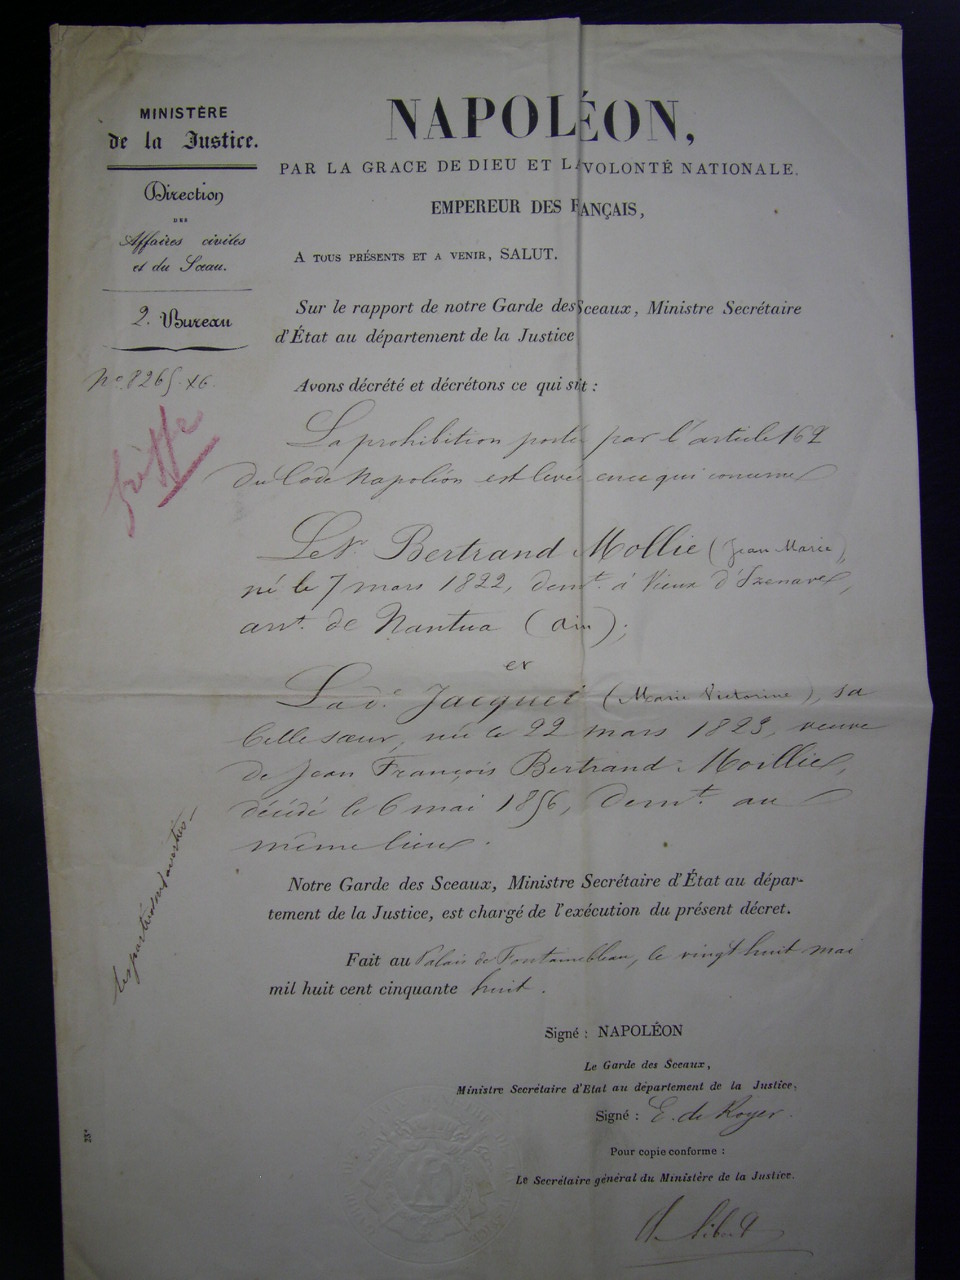 MINISTÈRE
de la Justice.
Direction
DES
Affaires civiles
et du Sceau.
2. Bureau
No. 8265. X6.
NAPOLÉON,
PAR LA GRACE DE DIEU ET LA VOLONTÉ NATIONALE.
EMPEREUR DES FANÇAIS,
A TOUS PRÉSENTS ET A VENIR, SALUT.
Sur le rapport de notre Garde des Sceaux, Ministre Secrétaire
d'État au département de la Justice
Avons décrété et décrétons ce qui sit :
La prohibition portée par l'article 162
du Code Napoléon est levée en ce qui concerne
Le Sr. Bertrand Mollie (Jean Marie),
né le 7 mars 1822, demt. à Vieux d'Izenave,
arrt. de Nantua (ain);
et
La de. Jacquet (Marie Victorine), sa
belle sœur, née le 22 mars 1823, veuve
de Jean François Bertrand Moillie,
décédé le 6 mai 1856, demt. au
même lieu.
Notre Garde des Sceaux, Ministre Secrétaire d'État au dépar-
tement de la Justice, est chargé de l'exécution du présent décret.
Fait au Palais de Fontainebleau, le vingt huit mai
mil huit cent cinquante huit.
Signé : NAPOLÉON
Le Garde des Sceaux,
Ministre Secrétaire d'Etat au département de la Justice,
Signé : E. de Royer.
Pour copie conforme :
Le Secrétaire général du Ministère de la Justice.
griffe
les parties sont averties
23*